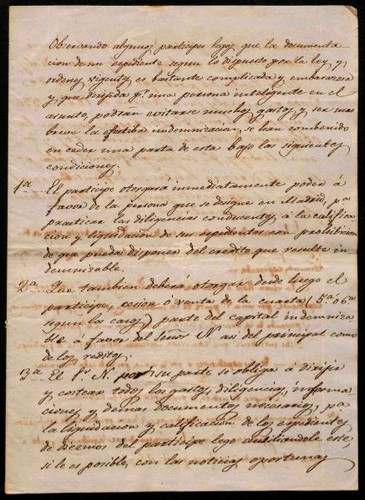 Observando algunos participes legos que la documenta
cion de un espediente segun lo dispuesto por la ley y
ordenes vigentes, es bastante complicada y embarazosa
y que dirijida pr. una persona inteligente en el
asunto, podran evitarse muchos gastos, y ser mas
breve la efectiva indemnizacion, se han combenido
en ceder una parte de esta bajo las siguientes
condiciones.
1ª El participe otorgará inmediatamente poder á
favor de la persona que se designe en Madrid, pa.
practicar las diligencias conducentes, á la califica
cion y liquidacion de sus espedientes con prohibicion
de que pueda disponer del credito que resulte in
demnizable.
2ª Que tambien deberá otorgar desde luego el
participe, cesion ó venta de la cuarta (5ª ó 6ª
segun los casos) parte del capital indemniza
ble á favor del Señor N asi del principal como
de los reditos.
3ª El S. N. por su parte se obliga á dirijir
y costear todos los gastos, diligencias, informa
ciones, y demas documentos necesarios, pa.
la liquidacion y calificacion de los espedientes
de diezmos del participe lego auxiliandole este,
si le es posible, con las noticias oportunas